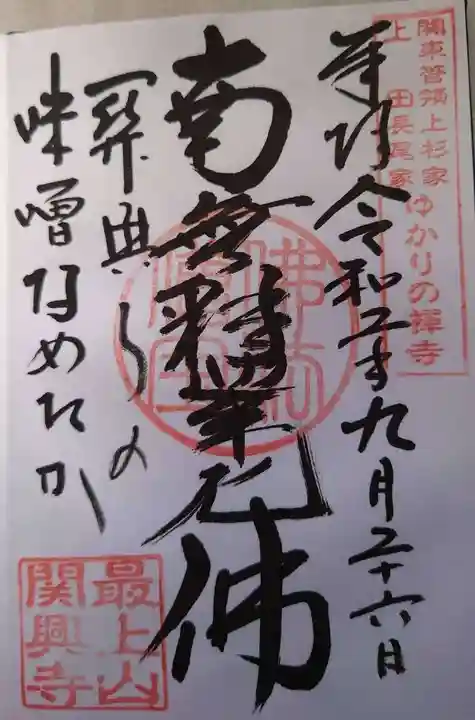 關東管領上杉家
上田長尾家
ゆかりの禅寺
奉拝令和二年九月二十六日
南無釋迦牟尼佛
佛法僧寶
関興寺の
味噌なめたか
最上山
關興寺